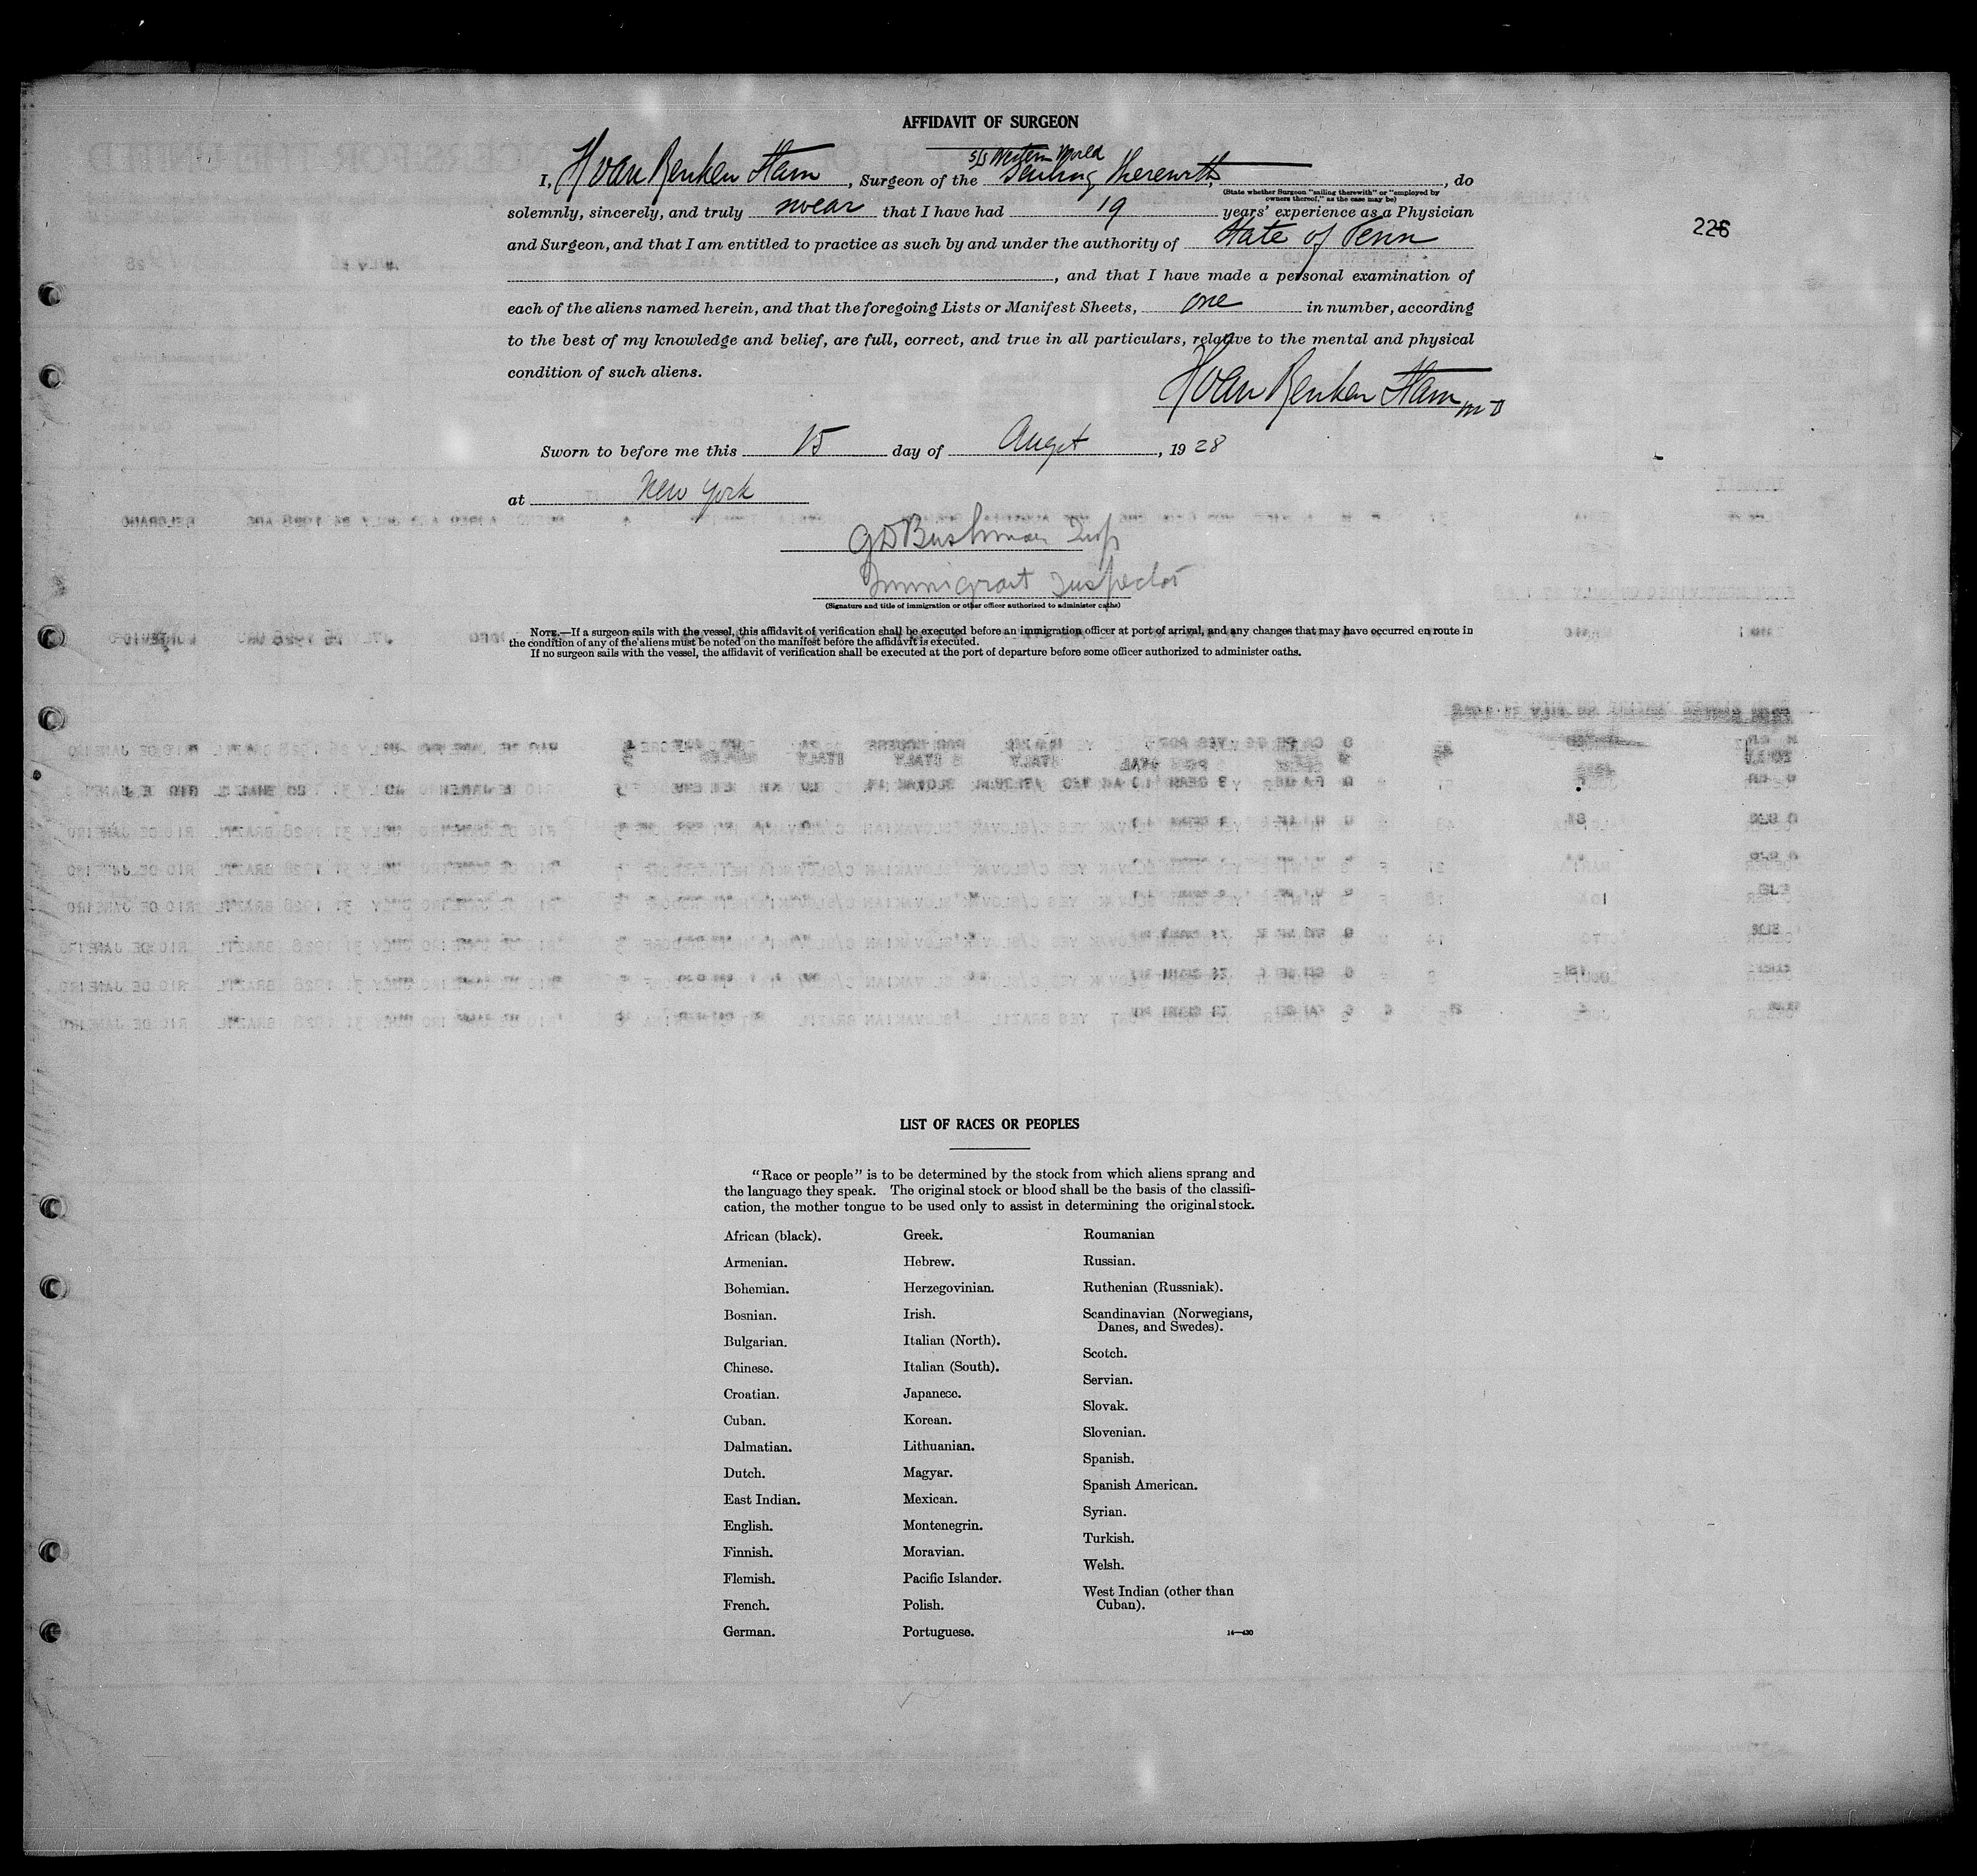 AFFIDAVIT OF SURGEON
S/S Western World
I, H van Renken Stam, Surgeon of the Sailing therewith, do
(State whether Surgeon "sailing therewith" or "employed by
owners thereof," as the case may be)
solemnly, sincerely, and truly swear that I have had 19 years' experience as a Physician
226
and Surgeon, and that I am entitled to practice as such by and under the authority of State of Penn
, and that I have made a personal examination of
each of the aliens named herein, and that the foregoing Lists or Manifest Sheets, one in number, according
to the best of my knowledge and belief, are full, correct, and true in all particulars, relative to the mental and physical
condition of such aliens.
H van Renken Stam MD
Sworn to before me this 15 day of Augst, 1928
at New York
GD Bushman Insp
Immigrant Inspector
(Signature and title of immigration or other officer authorized to administer oaths)
NOTE.—If a surgeon sails with the vessel, this affidavit of verification shall be executed before an immigration officer at port of arrival, and any changes that may have occurred en route in
the condition of any of the aliens must be noted on the manifest before the affidavit is executed.
If no surgeon sails with the vessel, the affidavit of verification shall be executed at the port of departure before some officer authorized to administer oaths.
LIST OF RACES OR PEOPLES
"Race or people" is to be determined by the stock from which aliens sprang and
the language they speak. The original stock or blood shall be the basis of the classifi-
cation, the mother tongue to be used only to assist in determining the original stock.
African (black).
Armenian.
Bohemian.
Bosnian.
Bulgarian.
Chinese.
Croatian.
Cuban.
Dalmatian.
Dutch.
East Indian.
English.
Finnish.
Flemish.
French.
German.
Greek.
Hebrew.
Herzegovinian.
Irish.
Italian (North).
Italian (South).
Japanese.
Korean.
Lithuanian.
Magyar.
Mexican.
Montenegrin.
Moravian.
Pacific Islander.
Polish.
Portuguese.
Roumanian
Russian.
Ruthenian (Russniak).
Scandinavian (Norwegians,
Danes, and Swedes).
Scotch.
Servian.
Slovak.
Slovenian.
Spanish.
Spanish American.
Syrian.
Turkish.
Welsh.
West Indian (other than
Cuban).
14—430